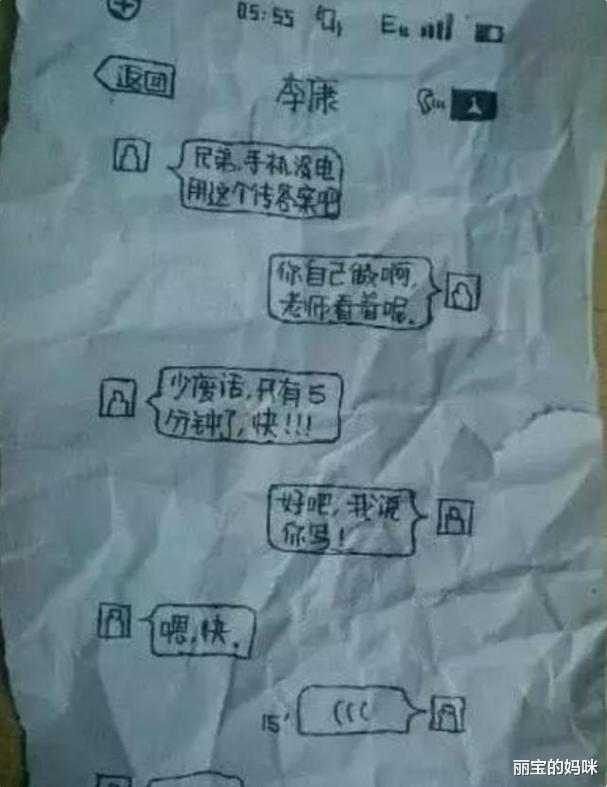 05:55 E
返回
李康
兄弟,手机没电
用这个传答案吧
你自己做啊,
老师看着呢.
少废话,只有5
分钟了,快!!!
好吧,我说
你写!
嗯,快.
15" (((
丽宝的妈咪